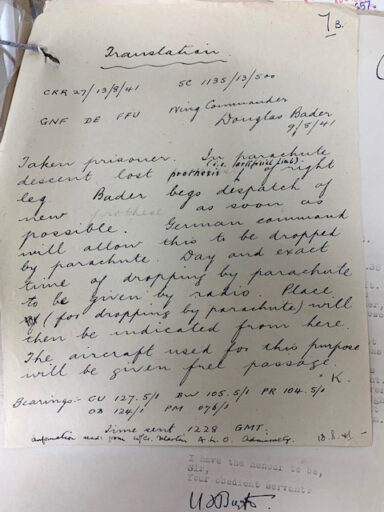 7B.
Translation.
CRR 27/13/8/41 SC 1135/13/500
GNF DE FFU Wing Commander
Douglas Bader
9/8/41
Taken prisoner. In parachute
(i.e. (artificial limb).
descent lost prothosis of right
leg Bader begs despatch of
new prothese as soon as
possible. German command
will allow this to be dropped
by parachute. Day and exact
time of dropping by parachute
to be given by radio. Place
(for dropping by parachute) will
then be indicated from here.
The aircraft used for this purpose
will be given free passage.
K.
Bearings:- CU 127.5/1 BW 105.5/1 PR 104.5/1
OB 124/1 PM 076/1
Time sent 1228 GMT.
Information recd: from W/C. Martin A.L.O. Admiralty. 13.8.41
I have the honour to be,
Sir,
Your obedient servant.